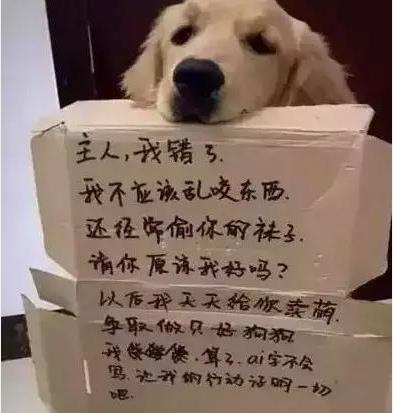 主人，我错了.
我不应该乱咬东西.
还经常偷你的袜子.
请你原谅我好吗？
以后我天天给你卖萌.
争取做只好狗狗
我 算了. ai字不会
写. 让我的行动证明一切
吧.